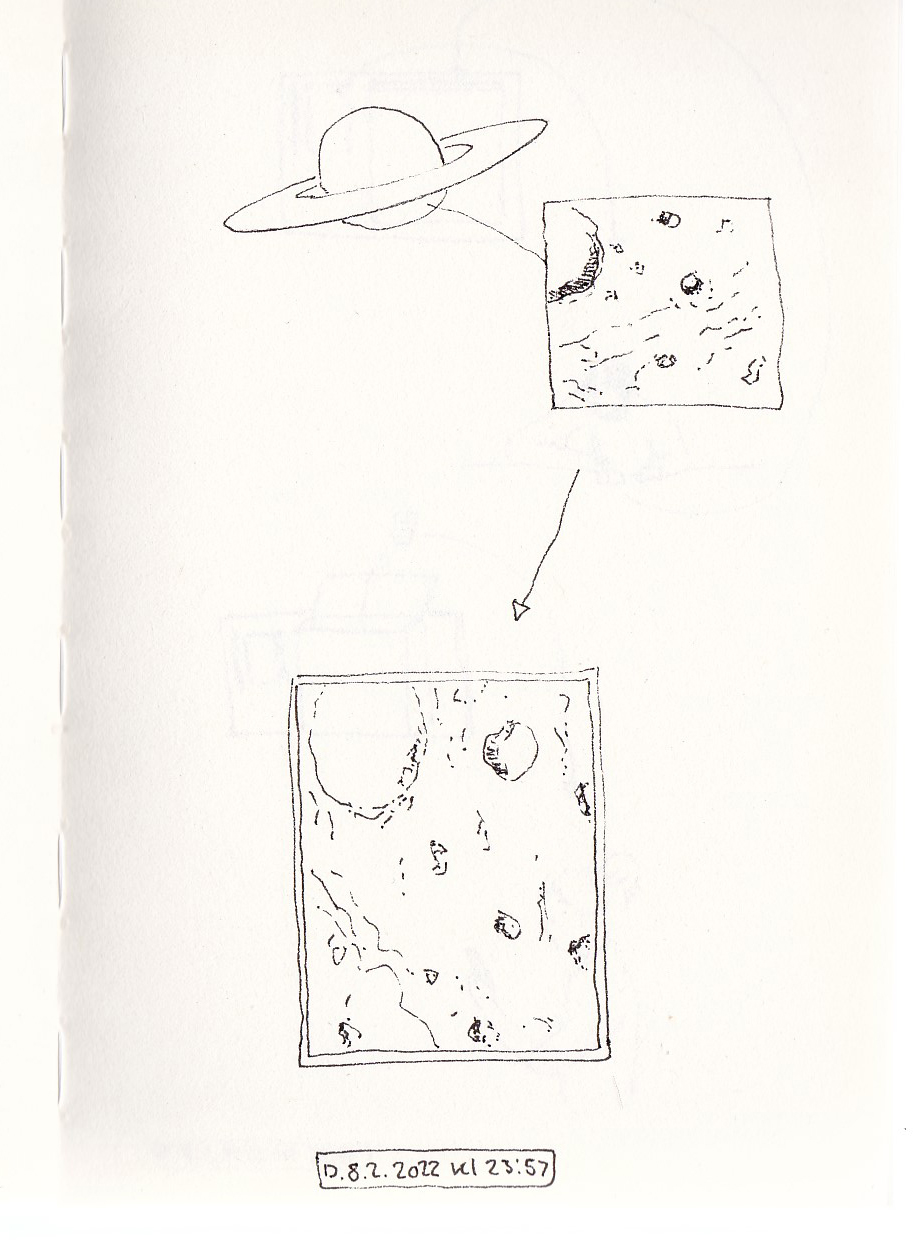 D.8.2.2022 kl 23:57